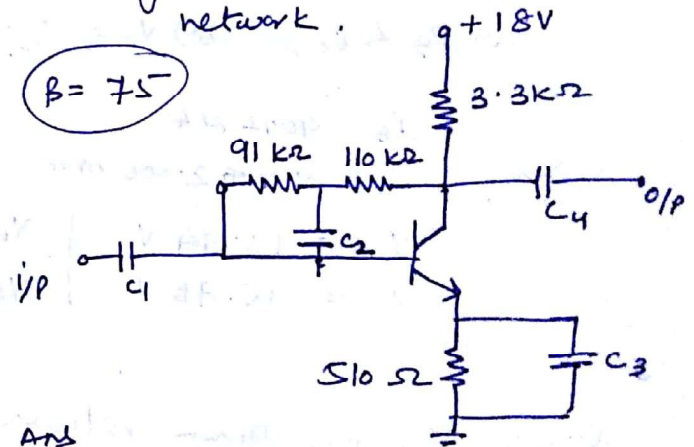 network.
+ 18V
β = 75
3.3KΩ
91 kΩ 110 kΩ
C4
O/P
C2
i/P
C1
510 Ω
C3
Ans